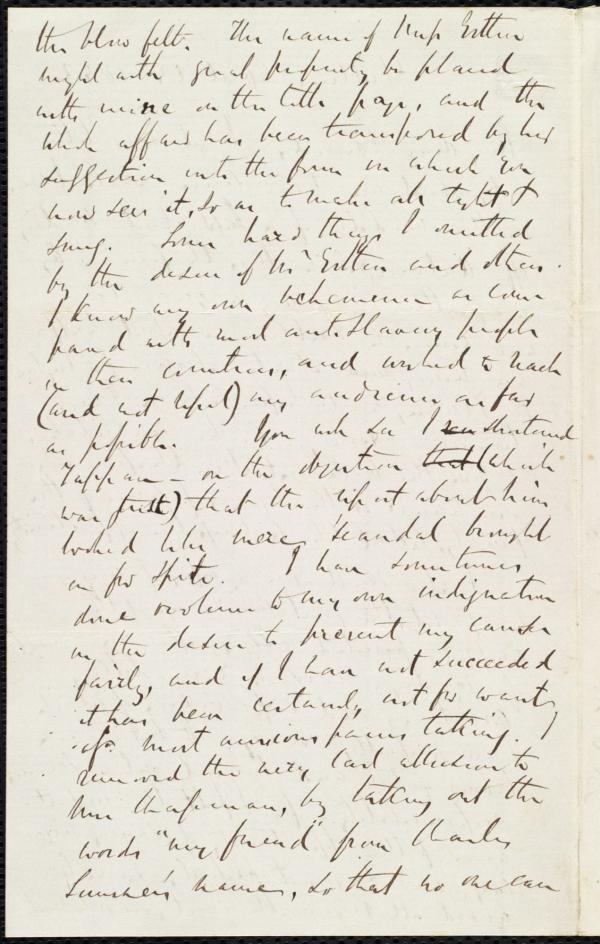 the blow felt. The name of Miss Estlin
might with great propriety be placed
with mine on the title page, and the
whole affair has been transposed by her
suggestion into the form in which you
now see it, so as to make all tight &
snug. Some hard things I omitted
by the desire of Mr Estlin and others.
I know my own vehemence as com
pared with most antislavery people
in this country, and wished to reach
(and not repel) my audience as far
as possible. You will see I shortened
Tappan – on the objection that (which
was just) that the report about him
looked like mere scandal brought
in for spite. I have sometimes
done violence to my own indignation
in the desire to present my causes
fairly, and if I have not succeeded
it has been certainly not for want
of most anxious pains taking. I
removed the very last allusion to
Mrs Chapman, by taking out the
words "my friend" from Charles
Sumner's names, so that no one can